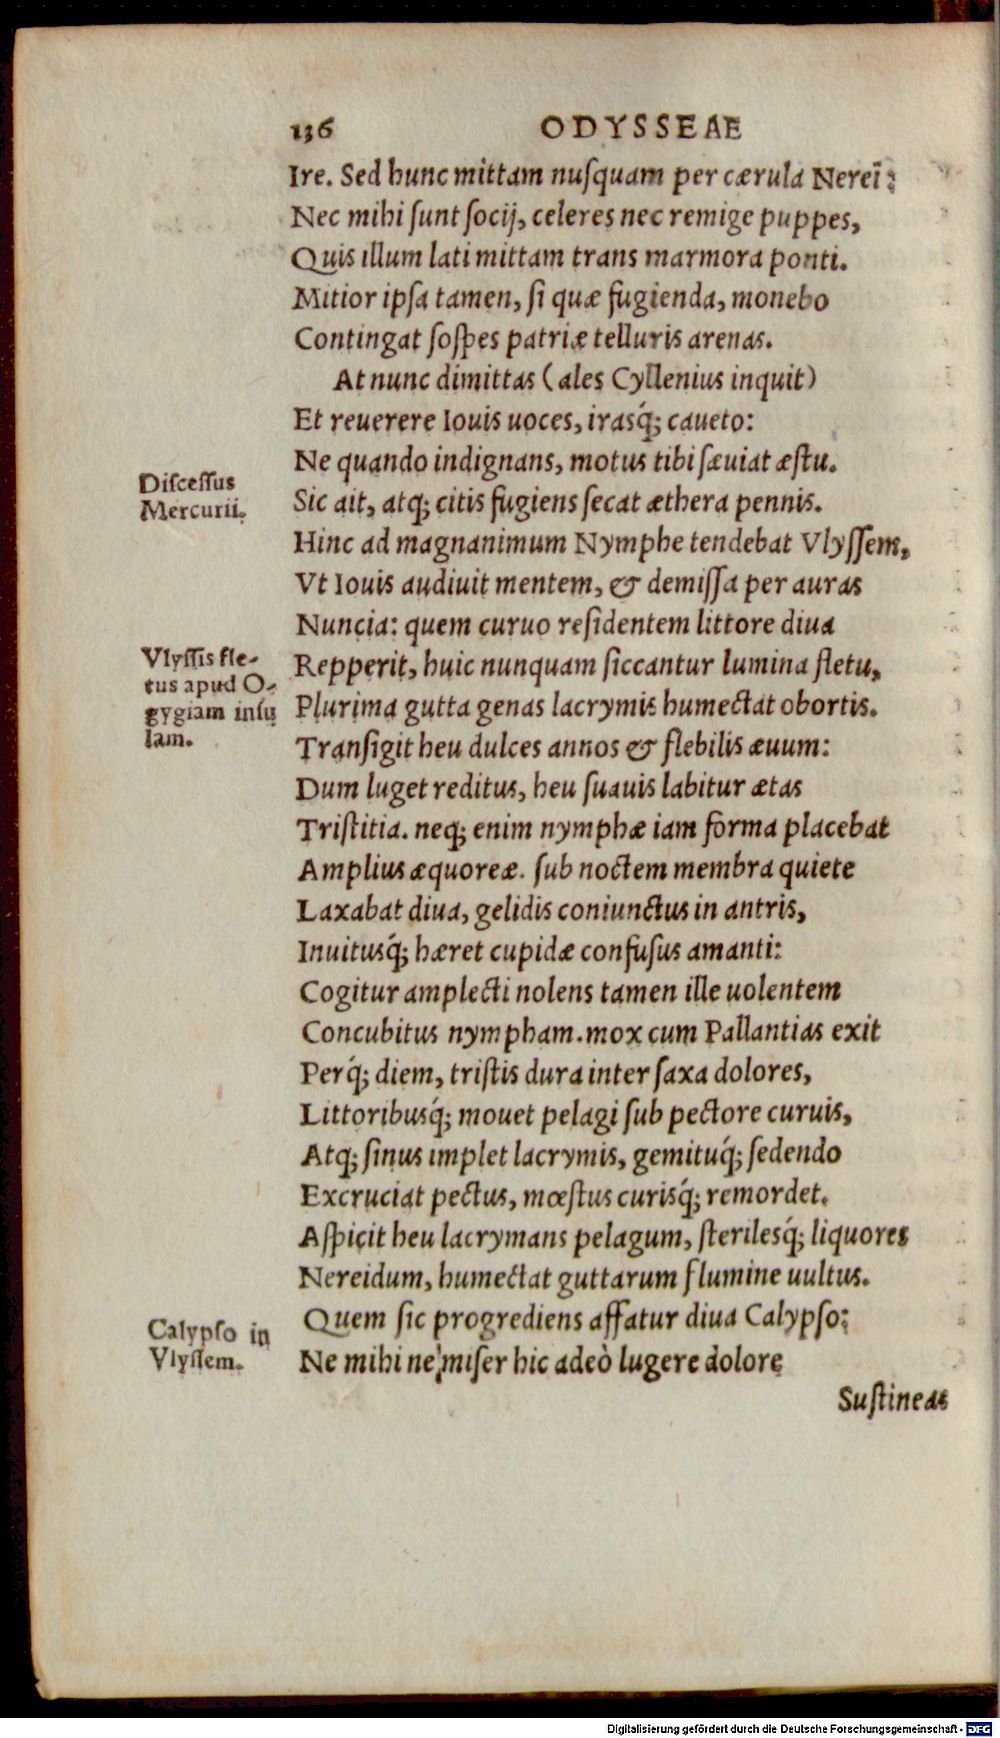 136 ODYSSEAE
Ire. Sed hunc mittam nuſquam per cærula Nereī:
Nec mihi ſunt ſocij, celeres nec remige puppes,
Quis illum lati mittam trans marmora ponti.
Mitior ipſa tamen, ſi quæ fugienda, monebo
Contingat ſoſpes patriæ telluris arenas.
At nunc dimittas (ales Cyllenius inquit)
Et reuerere Iouis uoces, irasq́; caueto:
Ne quando indignans, motus tibi ſæuiat æſtu.
Diſceſſus
Mercurii.
Sic ait, atq; citis fugiens ſecat æthera pennis.
Hinc ad magnanimum Nymphe tendebat Vlyſſem,
Vt Iouis audiuit mentem, & demiſſa per auras
Nuncia: quem curuo reſidentem littore diua
Vlyſſis fle-
tus apud O-
gygiam inſu
lam.
Repperit, huic nunquam ſiccantur lumina fletu,
Plurima gutta genas lacrymis humectat obortis.
Tranſigit heu dulces annos & flebilis æuum:
Dum luget reditus, heu ſuauis labitur ætas
Triſtitia. neq; enim nymphæ iam forma placebat
Amplius æquoreæ. ſub noctem membra quiete
Laxabat diua, gelidis coniunctus in antris,
Inuitusq́; hæret cupidæ confuſus amanti:
Cogitur amplecti nolens tamen ille uolentem
Concubitus nympham. mox cum Pallantias exit
Perq́; diem, triſtis dura inter ſaxa dolores,
Littoribusq́; mouet pelagi ſub pectore curuis,
Atq; ſinus implet lacrymis, gemituq́; ſedendo
Excruciat pectus, mœſtus curisq́; remordet.
Aſpicit heu lacrymans pelagum, ſterilesq́; liquores
Nereidum, humectat guttarum flumine uultus.
Quem ſic progrediens affatur diua Calypſo:
Calypſo in
Vlyſſem.
Ne mihi ne, miſer hic adeò lugere dolore
Suſtineas
Digitalisierung gefördert durch die Deutsche Forschungsgemeinschaft - DFG